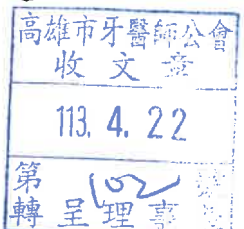 高雄市牙醫師公會
收文章
113. 4. 22
第 102 號
轉呈理事